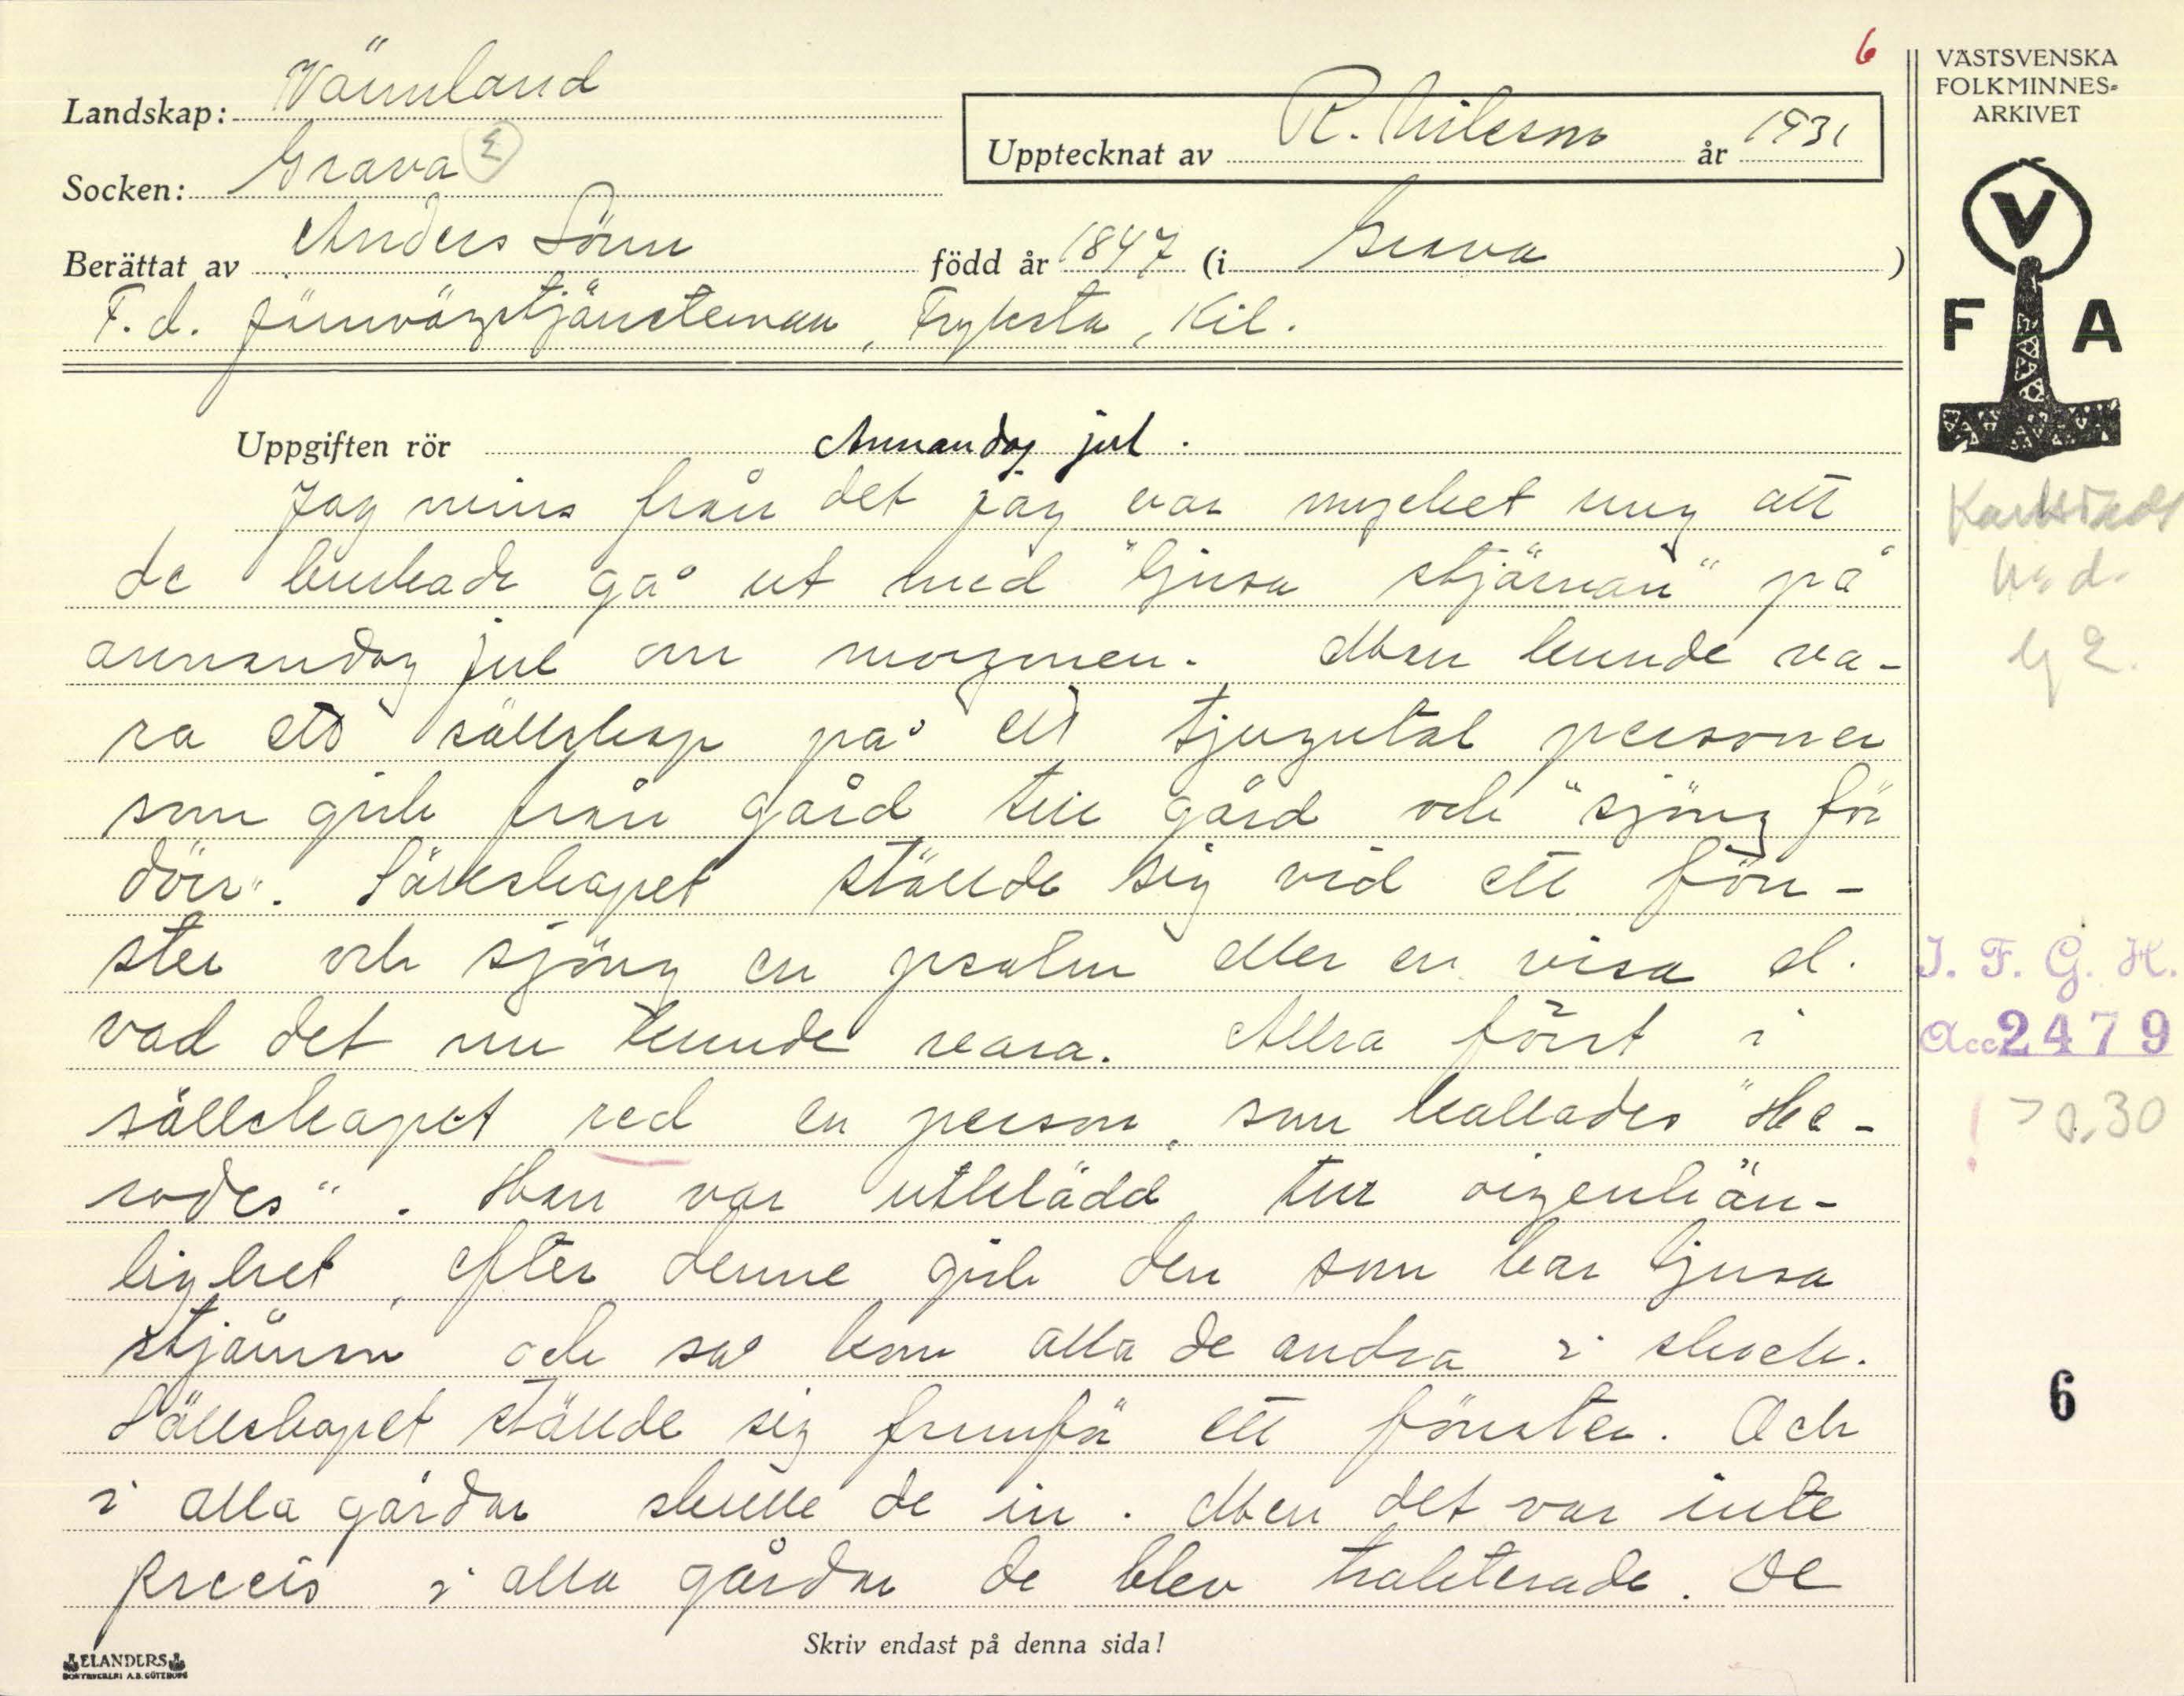 6
VÄSTSVENSKA
FOLKMINNES-
ARKIVET
Landskap: Värmland
Upptecknat av R. Nilsson år 1931
Socken: Grava
Berättat av Anders Lönn född år 1847 (i Grava )
F.d. Järnvägstjänsteman, Fryksta, Kil.
V
F A
Uppgiften rör Annandag jul.
Jag mins från det jag var mycket ung att
de brukade gå ut med "ljusa stjärnan" på
annandag jul om morgonen. Men kunde va-
ra ett sällskap på ett tjugutal personer
som gick från gård till gård och "sjöng för
dörr". Sällskapet ställde sig vid ett fön-
ster och sjöng en psalm eller en visa el.
vad det nu kunde vara. Allra först i
sällskapet red en person, som kallades "He-
rodes". Han var utklädd till oigenkän-
lighet, efter denne gick den som bar ljusa
stjärnan och så kom alla de andra i skock.
Sällskapet ställde sig framför ett fönster. Och
i alla gårdar skulle de in. Men det var inte
precis i alla gårdar de blev trakterade. De
Karlstads
häd.
G 2.
I. F. G. H.
Acc 2479
! > s. 30
6
Skriv endast på denna sida!
ELANDERS
BOKTRYCKERI A.B. GÖTEBORG